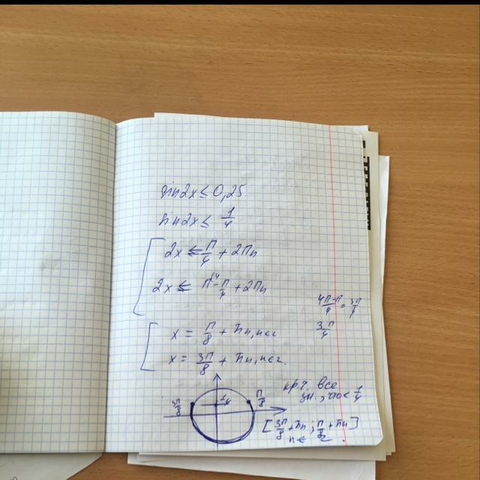 sin2x ≤ 0,25
sin2x ≤ 1/4
2x ≤ π/4 + 2πn
2x ≤ π - π/4 + 2πn
4π-π/4 = 3π/4
3π/4
x = π/8 + πn, n∈z
x = 3π/8 + πn, n∈z.
кр.т. все
зн., что < 1/4
3π/8 1/4 π/8
[3π/8 + πn; π/8 + πn]